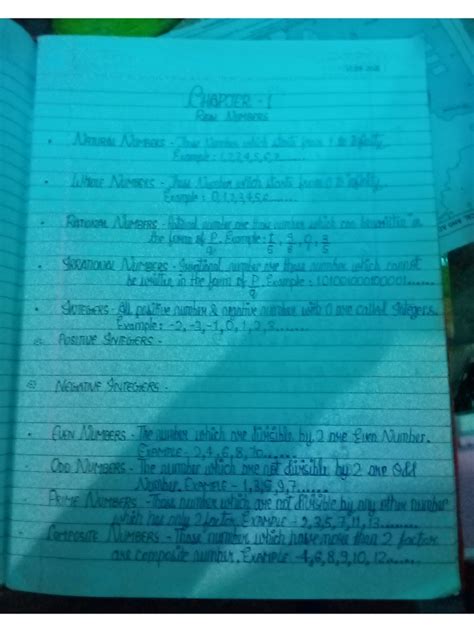 CHAPTER - 1
REAL NUMBERS
• NATURAL NUMBERS - Those Number which starts from 1 to Infinity.
Example : 1,2,3,4,5,6,7......
• WHOLE NUMBERS - Those Number which starts from 0 to infinity.
Example : 0,1,2,3,4,5,6......
• RATIONAL NUMBERS - Rational number are those number which can be written in
the form of P/q. Example :
• IRRATIONAL NUMBERS - Irrational number are those number which cannot
be written in the form of P/q. Example : 1.01001000100001......
• INTEGERS - All positive number & negative number with 0 are called Integers.
Example : -2,-3,-1,0,1,2,3......
POSITIVE INTEGERS -
NEGATIVE INTEGERS -
• EVEN NUMBERS - The number which are divisible by 2 are Even Number.
EXAMPLE - 2,4,6,8,10......
• ODD NUMBERS - The number which are not divisible by 2 are Odd
Number. EXAMPLE - 1,3,5,9,7......
• PRIME NUMBERS - Those number which are not divisible by any other number
which has only 2 factor. EXAMPLE - 2,3,5,7,11,13......
• COMPOSITE NUMBERS - Those number which have more than 2 factors
are composite number. EXAMPLE - 4,6,8,9,10,12......